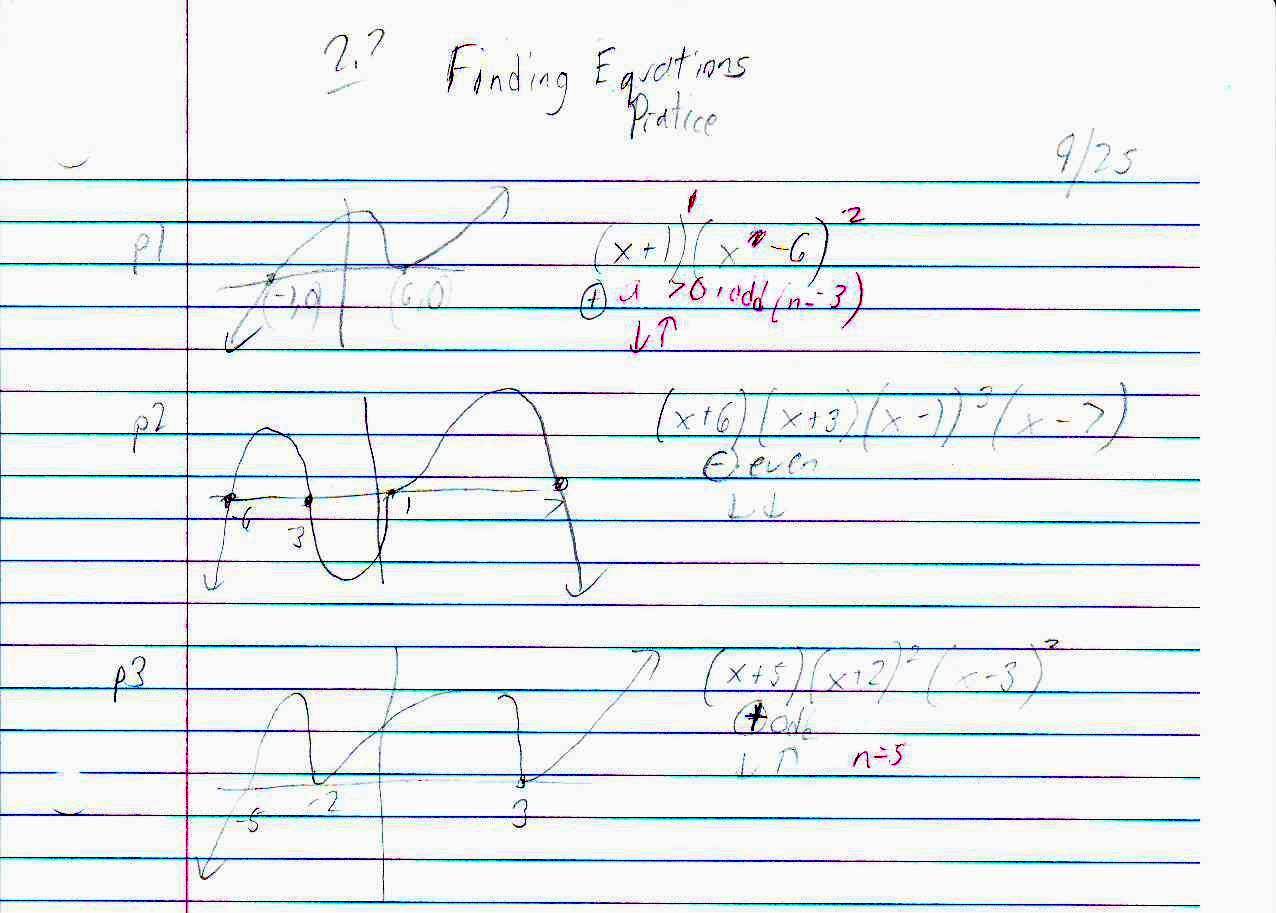 2.?
Finding Equations
Pratice
9/25
p1
(-1,0) (6,0)
(x+1)¹(x -6)²
+ a >0, odd (n=3)
↓↑
p2
-6 3 1 7
(x+6)(x+3)(x-1)³(x-7)
- even
↓↓
p3
-5 -2 3
(x+5)(x+2)²(x-3)²
+ odd
↓↑ n=5